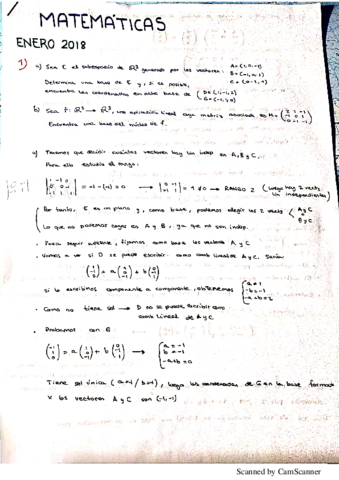 MATEMÁTICAS
ENERO 2018
1) a) Sea E el subespacio de ℝ³ generado por los vectores: A=(1,0,-1)
B=(-1,0,1)
C=(0,-1,1)
Determina una base de E y, si es posible,
encuentra las coordenadas en dicha base de { D=(1,-1,2)
G=(-1,1,0)
b) Sea f: ℝ³ → ℝ³, una aplicación lineal cuya matriz asociada es M=
Encuentra una base del núcleo de f.
a) Tenemos que decidir cuántos vectores hay lin indep en A, B y C.
Para ello estudio el rango:
= -1-(-1)=0 → = 1 ≠ 0 → RANGO 2 (luego hay 2 vects. lin independientes)
Por tanto, E es un plano y, como base, podemos elegir los 2 vects < A y C
B y C
Lo que no podemos coger es A y B, ya que no son indep.
· Para seguir adelante, fijamos como base los vectores A y C
· Vamos a ver si D se puede escribir como comb lineal de A y C. Sería
(1 -1 2) = a (1 0 -1) + b (0 -1 1)
si lo escribimos componente a componente, obtenemos { a=1
-b=-1
-a+b=2
· Como no tiene sol → D no se puede escribir como
comb lineal de A y C
· Probamos con G:
(-1 1 0) = a (1 0 -1) + b (0 -1 1) → { a=-1
b=-1
-a+b=0
Tiene sol única (a=-1 / b=-1), luego las coordenadas de G en la base formada
x los vectores A y C son (-1,-1)
Scanned by CamScanner